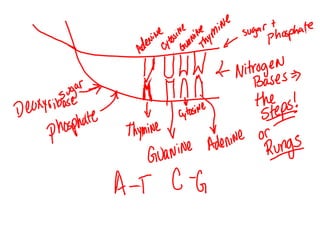 Adenine
Cytosine
Guanine
Thymine
sugar + phosphate
Nitrogen
Bases →
the
Steps!
or
Rungs
Deoxysibose sugar
Phosphate
Thymine
Guanine
Cytosine
Adenine
A-T C-G